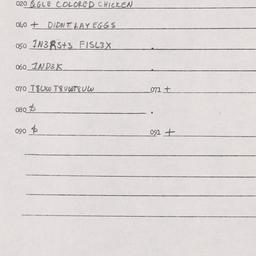 020 &GLE COLORED CHICKEN
040 + DIDNT LAY EGGS
050 IN3RS+3 FISL3X
060 IND3K
070 T8UW T8UWT8UW 071 +
080 $
090 $ 091 +